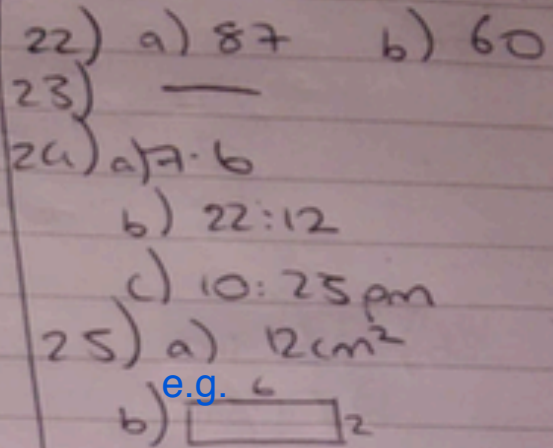 22) a) 87 b) 60
23) —
24) a) 7.6
b) 22:12
c) 10:25pm
25) a) 12cm²
e.g. 6
b) 2